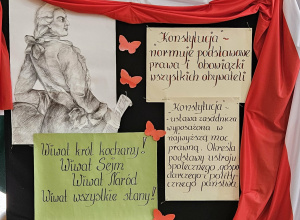 Konstytucja -
normuje podstawowe
prawa i obowiązki
wszystkich obywateli
Konstytucja -
- ustawa zasadnicza
wyposażona w
najwyższą moc
prawną. Określa
podstawy ustroju
społecznego, gospo-
darczego i polity-
cznego państwa
Wiwat król kochany!
Wiwat Sejm
Wiwat Naród
Wiwat wszystkie stany!